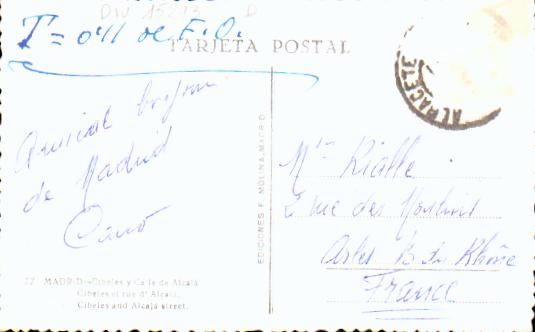 DW 15213 D
T = 0'11 de F.O.
TARJETA POSTAL
ALBACETE
Amical bonjour
de Madrid
Cano
EDICIONES F. MOLINA-MADRID
Mr Rialle
2 rue des Moulins
Arles B. du Rhône
France
27 MADRID.-Cibeles y Calle de Alcalá
Cibeles et rue d'Alcalá.
Cibeles and Alcalá street.